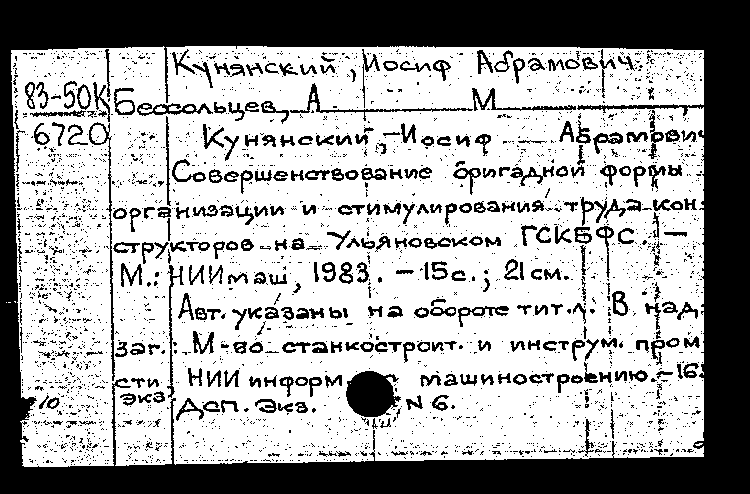 Кунянский, Иосиф Абрамович.
83-50К Бессольцев, А. М ,
6720 Кунянский, Иосиф Абрамович
Совершенствование бригадной формы
организации и стимулирования труда кон-
структоров на Ульяновском ГСКБФС. —
М.: НИИмаш, 1983. - 15 с.; 21 см.
Авт. указаны на обороте тит.л. В над-
заг.: М-во станкостроит. и инструм. пром-
сти, НИИ информ. машиностроению. -
экз
10 Дсп. Экз. N 6.